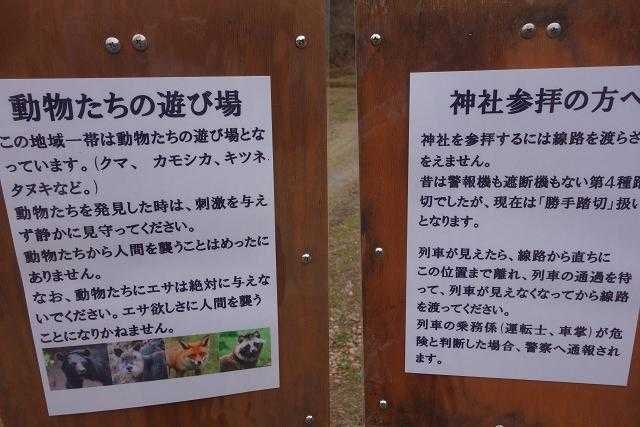 動物たちの遊び場
この地域一帯は動物たちの遊び場とな
っています。(クマ、 カモシカ、キツネ、
タヌキなど。)
動物たちを発見した時は、刺激を与え
ず静かに見守ってください。
動物たちから人間を襲うことはめったに
ありません。
なお、動物たちにエサは絶対に与えな
いでください。エサ欲しさに人間を襲う
ことになりかねません。
神社参拝の方へ
神社を参拝するには線路を渡らざ
をえません。
昔は警報機も遮断機もない第4種踏
切でしたが、現在は「勝手踏切」扱い
となります。
列車が見えたら、線路から直ちに
この位置まで離れ、列車の通過を待
って、列車が見えなくなってから線路
を渡ってください。
列車の乗務係(運転士、車掌)が危
険と判断した場合、警察へ通報され
ます。